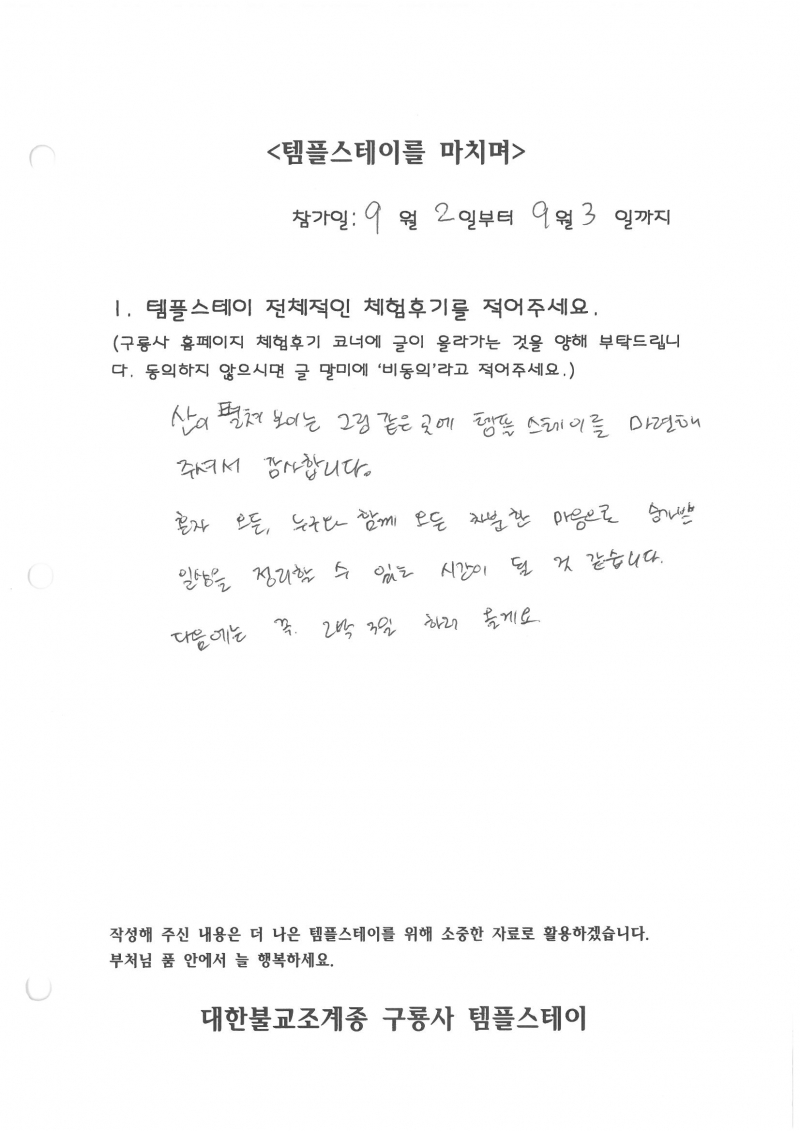 <템플스테이를 마치며>
참가일: 9 월 2일부터 9월 3 일까지
1. 템플스테이 전체적인 체험후기를 적어주세요.
(구룡사 홈페이지 체험후기 코너에 글이 올라가는 것을 양해 부탁드립니
다. 동의하지 않으시면 글 말미에 '비동의'라고 적어주세요.)
산이 펼쳐 보이는 그림 같은 곳에 템플 스테이를 마련해
주셔서 감사합니다.
혼자 오든, 누구와 함께 오든 차분한 마음으로 숨가쁜
일상을 정리할 수 있는 시간이 될 것 같습니다.
다음에는 꼭. 2박 3일 하러 올게요.
작성해 주신 내용은 더 나은 템플스테이를 위해 소중한 자료로 활용하겠습니다.
부처님 품 안에서 늘 행복하세요.
대한불교조계종 구룡사 템플스테이